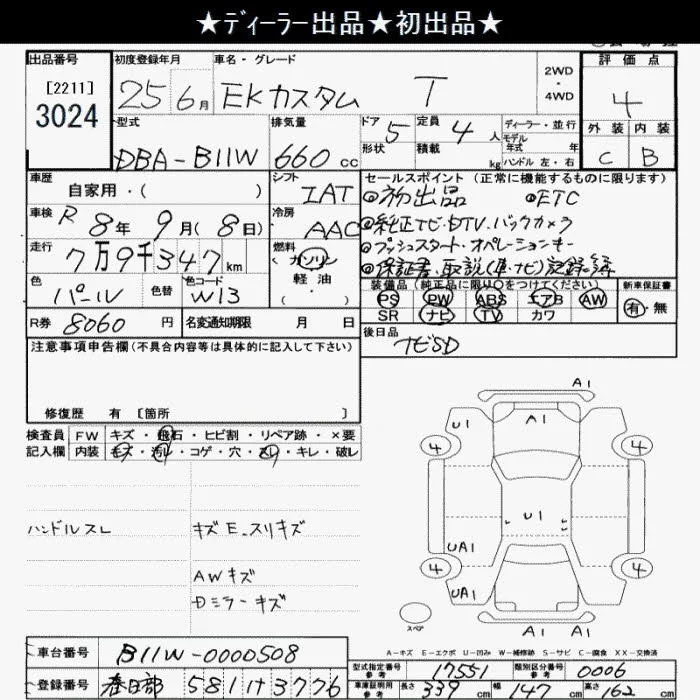 ★ディーラー出品★初出品★
出品番号 初度登録年月 車名・グレード 2WD・4WD 評価点
[2211]
3024
25 6月 EKカスタム T 4
型式 排気量 ドア 5 定員 4人 ディーラー・並行 外装 内装
形状 積載 kg モデル年式 年 ハンドル 左・右
DBA-B11W 660cc C B
車歴 自家用・( ) シフト IAT セールスポイント(正常に機能するものに限ります)
◎初出品 ◎ETC
車検 R 8年 9月(8日) 冷房 AAC
◎純正ナビ・DTV.バックカメラ
走行 7万9千347km 燃料 (ガソリン・軽油)
◎プッシュスタート・オペレーションキー
◎保証書・取説(車・ナビ)記録簿
色 パール 色替 色コード W13
装備品(純正品に限り○をつけてください) 新車保証書
PS PW ABS エアB AW 有・無
SR ナビ TV カワ
R券 8060円 名変通知期限 月 日
後日品
ナビSD
注意事項申告欄(不具合内容等は具体的に記入して下さい)
修復歴 有 [箇所 ]
検査員 FW キズ・飛石・ヒビ割・リペア跡・×要
記入欄 内装 キズ・汚レ・コゲ・穴・スレ・キレ・破レ
A1
U1 A1
4 4
ハンドルスレ キズE.スリキズ
U1
UA1
AWキズ
4 4
Dミラーキズ
UA1
スペア A1 A1
A-キズ E-エクボ U-凹み W-補修跡 S-サビ C-腐食 XX-交換済
車台番号 B11W-0000508
型式指定番号 参考 17551 類別区分番号 参考 0006
登録番号 春日部 581 け 3776
車庫証明用 参考 長さ 339cm 幅 147cm 高さ 162cm